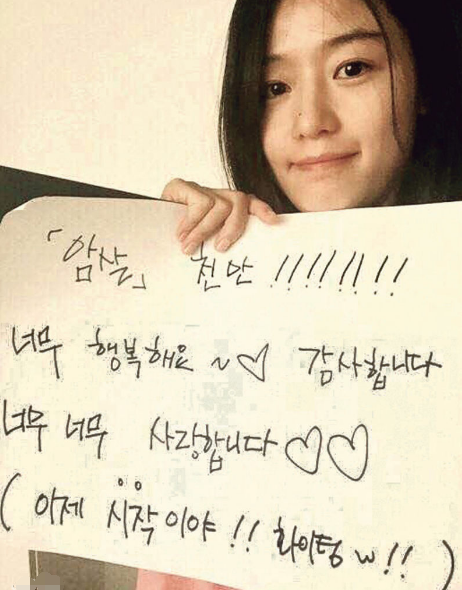 「암살」 천만 !!!!!!!!
너무 행복해요 ~♡ 감사합니다
너무 너무 사랑합니다 ♡♡
( 이제 시작이야 !! 화이팅 w !! )